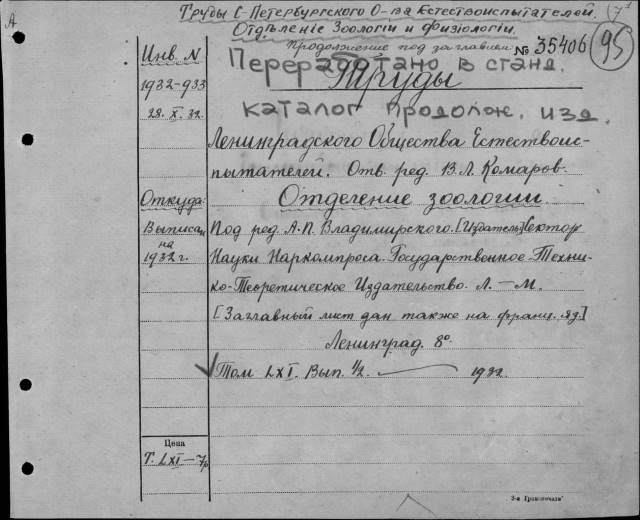 А
Труды С-Петербургского О-ва Естествоиспытателей.
Отдѣленіе Зоологіи и Физіологіи.
Продолжение под заглавием:
№ 35406
95
Инв. N
Переработано в станд.
Труды
1932-933
каталог продолж. изд.
28. X. 32.
Ленинградского Общества Естествоис-
пытателей. Отв. ред. В.Л. Комаров.
Откуда:
Отделение зоологии.
Выписан
на
1932 г.
Под ред. А.П. Владимирского. [Издатель] Сектор
Науки Наркомпроса. Государственное Техни-
ко-Теоретическое Издательство. Л. — М.
[Заглавный лист дан также на франц. яз.]
Ленинград. 8°.
Том LXI. Вып. 1/2. — 1932.
Цена
Т. LXI — 7р
3-я Гринпечати